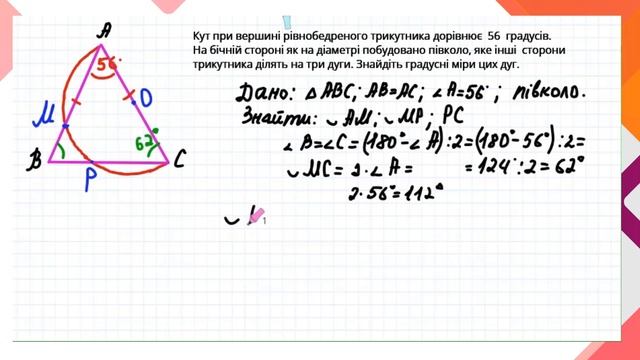 Кут при вершині рівнобедреного трикутника дорівнює 56 градусів.
На бічній стороні як на діаметрі побудовано півколо, яке інші сторони
трикутника ділять на три дуги. Знайдіть градусні міри цих дуг.
A
56°
M
O
B
62°
C
P
Дано: △ ABC; AB=AC; ∠A=56°; півколо.
Знайти: ◡ AM; ◡ MP; PC
∠B=∠C=(180°-∠A):2=(180°-56°):2=
◡ MC= 2·∠A= =124°:2=62°
2·56°=112°
◡